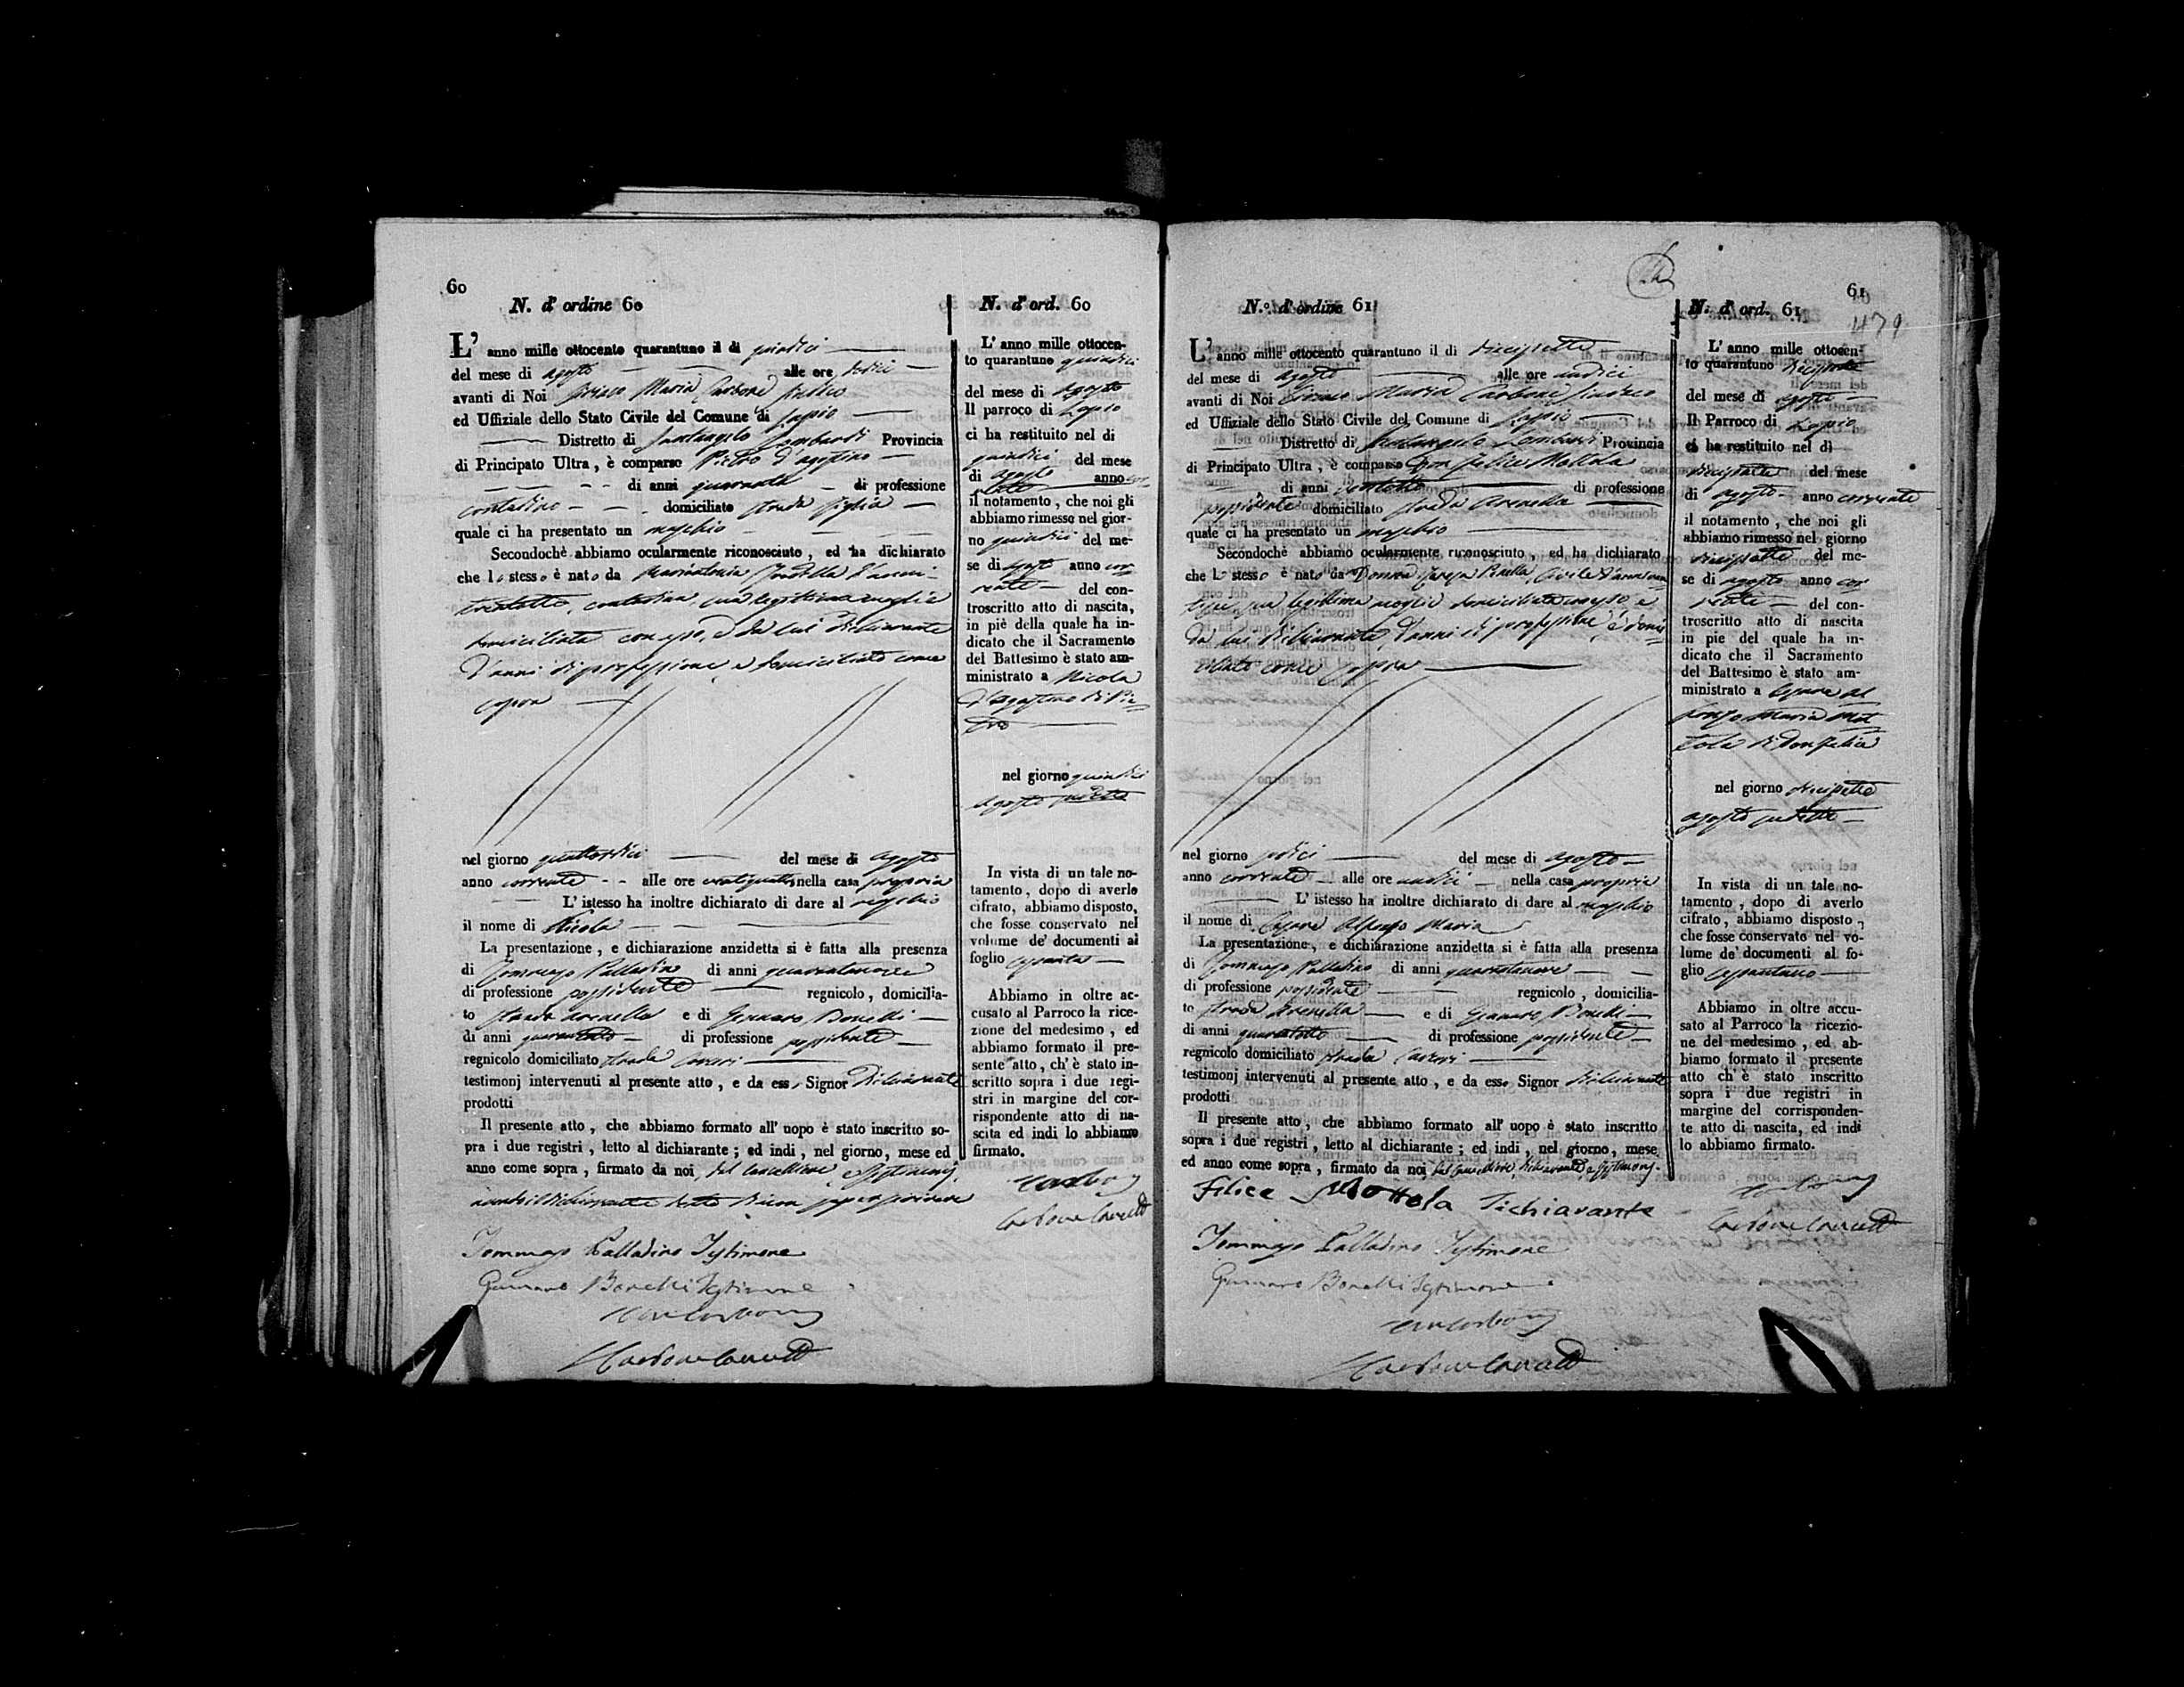 60
N. d' ordine 60
L' anno mille ottocento quarantuno il di quindici
del mese di agosto alle ore sedici
avanti di Noi Maria Carbone Sindaco
ed Uffiziale dello Stato Civile del Comune di Lapio
Distretto di Santangelo Lombardi Provincia
di Principato Ultra, è comparso Pietro d'agostino
di anni quaranta di professione
contadino domiciliato strada
quale ci ha presentato un maschio
Secondochè abbiamo ocularmente riconosciuto, ed ha dichiarato
che lo stesso è nato da Mariantonia d'anni
trentotto, contadina, sua legittima moglie
domiciliata con esso, e da lui dichiarante
d'anni di professione e domiciliato come
sopra
nel giorno quattordici del mese di agosto
anno corrente alle ore ventiquattro nella casa propria
L' istesso ha inoltre dichiarato di dare al maschio
il nome di Nicola
La presentazione, e dichiarazione anzidetta si è fatta alla presenza
di Tommaso Palladino di anni quarantanove
di professione possidente regnicolo, domicilia-
to strada Arenella e di Gennaro Bonelli
di anni quarantotto di professione possidente
regnicolo domiciliato strada
testimonj intervenuti al presente atto, e da esso Signor Dichiarante
prodotti
Il presente atto, che abbiamo formato all' uopo è stato inscritto so-
pra i due registri, letto al dichiarante; ed indi, nel giorno, mese ed
anno come sopra, firmato da noi, dal Cancelliere, e testimonj,
dichiarante detto di non saper scrivere
Tommaso Palladino Testimone
Gennaro Bonelli Testimone
Carbone
Carbone
N. d' ord. 60
L' anno mille ottocen-
to quarantuno quindici
del mese di Agosto
Il parroco di Lapio
ci ha restituito nel di
quindici del mese
di agosto anno cor-
rente
il notamento, che noi gli
abbiamo rimesso nel gior-
no quindici del me-
se di agosto anno cor-
rente del con-
troscritto atto di nascita,
in piè della quale ha in-
dicato che il Sacramento
del Battesimo è stato am-
ministrato a Nicola
d'Agostino di Pie-
tro
nel giorno quindici
agosto sudetto
In vista di un tale no-
tamento, dopo di averlo
cifrato, abbiamo disposto,
che fosse conservato nel
volume de' documenti al
foglio sessanta
Abbiamo in oltre ac-
cusato al Parroco la rice-
zione del medesimo, ed
abbiamo formato il pre-
sente atto, ch' è stato in-
scritto sopra i due regi-
stri in margine del cor-
rispondente atto di na-
scita ed indi lo abbiamo
firmato.
Carbone
Carbone
61
479
N.° d' ordine 61
L' anno mille ottocento quarantuno il di diecisette
del mese di agosto alle ore undici
avanti di Noi Maria Carbone Sindaco
ed Uffiziale dello Stato Civile del Comune di Lapio
Distretto di Santangelo Lombardi Provincia
di Principato Ultra, è comparso Don Felice Mottola
di anni ventotto di professione
possidente domiciliato strada Arenella
quale ci ha presentato un maschio
Secondochè abbiamo ocularmente riconosciuto, ed ha dichiarato
che lo stesso è nato da Donna Civile d'anni
sua legittima moglie domiciliata con esso e
da lui dichiarante, d'anni di professione, e domi-
ciliato come sopra
nel giorno sedici del mese di agosto
anno corrente alle ore undici nella casa propria
L' istesso ha inoltre dichiarato di dare al maschio
il nome di Cesare Alfonso Maria
La presentazione, e dichiarazione anzidetta si è fatta alla presenza
di Tommaso Palladino di anni quarantanove
di professione possidente regnicolo, domicilia-
to strada Arenella e di Gennaro Bonelli
di anni quarantotto di professione possidente
regnicolo domiciliato strada
testimonj intervenuti al presente atto, e da esso Signor dichiarante
prodotti
Il presente atto, che abbiamo formato all' uopo è stato inscritto
sopra i due registri, letto al dichiarante; ed indi, nel giorno, mese
ed anno come sopra, firmato da noi dal Cancelliere, dichiarante, e testimonj.
Felice Mottola Dichiarante
Tommaso Palladino Testimone
Gennaro Bonelli Testimone
Carbone
Carbone
N. d' ord. 61
L' anno mille ottocen-
to quarantuno diecisette
del mese di agosto
Il Parroco di Lapio
ci ha restituito nel di
diecisette del mese
di agosto anno corrente
il notamento, che noi gli
abbiamo rimesso nel giorno
diecisette del me-
se di agosto anno cor-
rente del con-
troscritto atto di nascita
in pie del quale ha in-
dicato che il Sacramento
del Battesimo è stato am-
ministrato a Cesare Al
fonso Maria Mot
tola di Don Felice
nel giorno diecisette
agosto sudetto
In vista di un tale no-
tamento, dopo di averlo
cifrato, abbiamo disposto,
che fosse conservato nel vo-
lume de' documenti al fo-
glio sessantuno
Abbiamo in oltre accu-
sato al Parroco la ricezio-
ne del medesimo, ed ab-
biamo formato il presente
atto ch' è stato inscritto
sopra i due registri in
margine del corrisponden-
te atto di nascita, ed indi
lo abbiamo firmato.
Carbone
Carbone